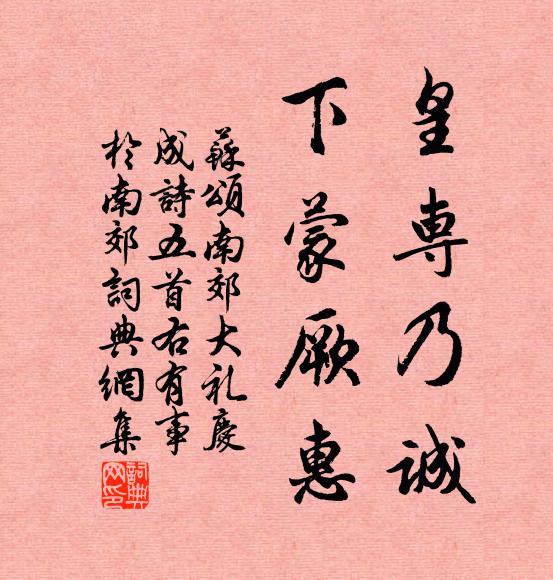 皇専乃誠
下蒙厥惠
蘇頌南郊大礼慶
成詩五首右有事
於南郊詞典網集
詞典网印